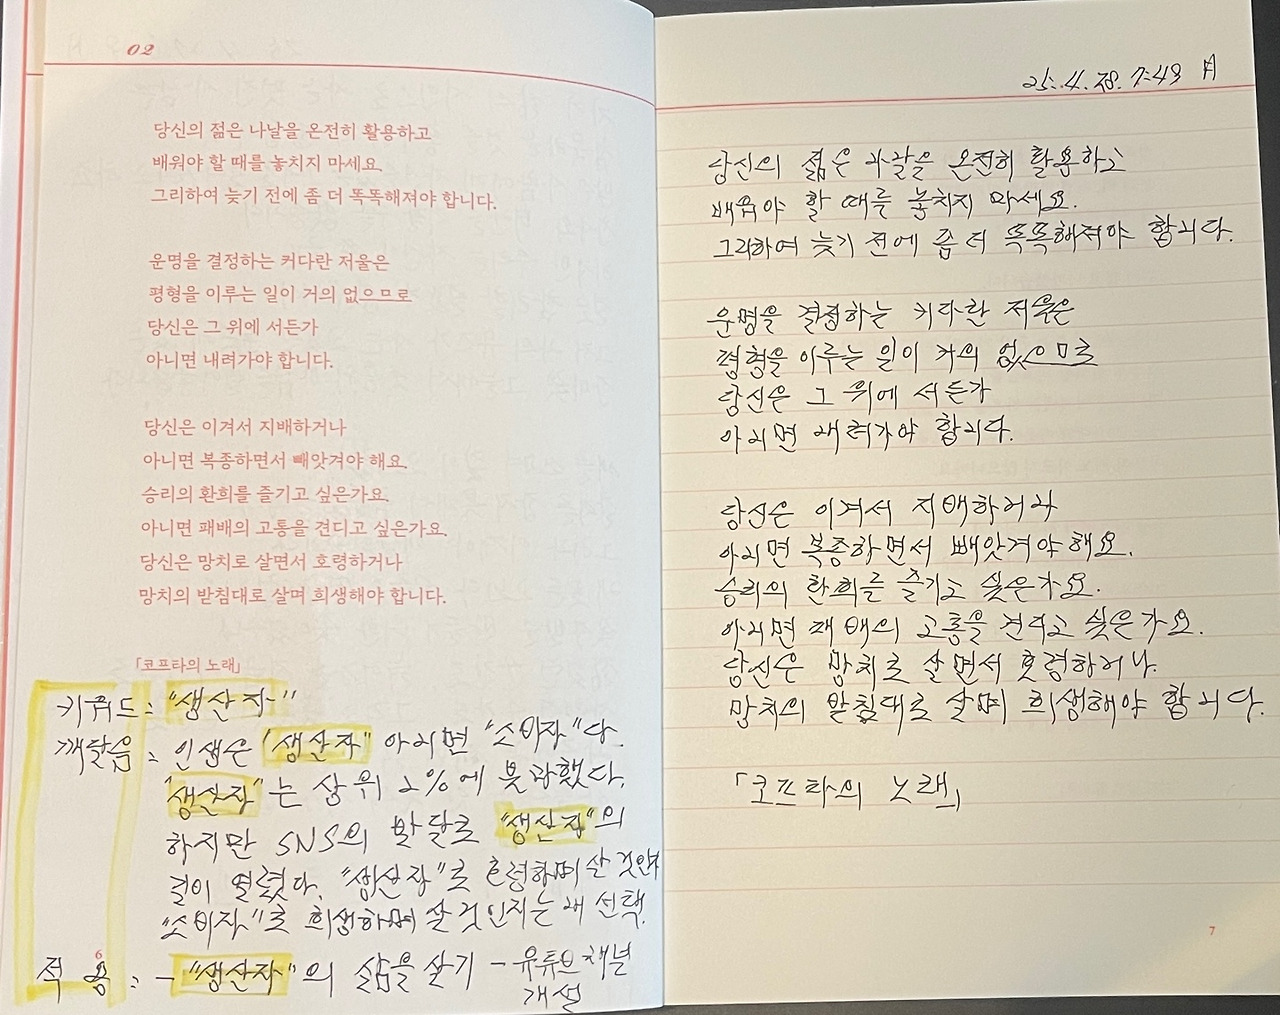 02
당신의 젊은 나날을 온전히 활용하고
배워야 할 때를 놓치지 마세요.
그리하여 늦기 전에 좀 더 똑똑해져야 합니다.
운명을 결정하는 커다란 저울은
평형을 이루는 일이 거의 없으므로
당신은 그 위에 서든가
아니면 내려가야 합니다.
당신은 이겨서 지배하거나
아니면 복종하면서 빼앗겨야 해요.
승리의 환희를 즐기고 싶은가요.
아니면 패배의 고통을 견디고 싶은가요.
당신은 망치로 살면서 호령하거나
망치의 받침대로 살며 희생해야 합니다.
「코프타의 노래」
키워드 : "생산자"
깨달음 : 인생은 "생산자" 아니면 "소비자"다.
"생산자"는 상위 2%에 불과했다.
하지만 SNS의 발달로 "생산자"의
길이 열렸다. "생산자"로 호령하며 살 것인가
"소비자"로 희생하며 살 것인지는 내 선택.
적용 : - "생산자"의 삶을 살기 - 유튜브 채널
개설
6
25. 4. 28. 7:49 月
당신의 젊은 나날을 온전히 활용하고
배워야 할 때를 놓치지 마세요.
그리하여 늦기 전에 좀 더 똑똑해져야 합니다.
운명을 결정하는 커다란 저울은
평형을 이루는 일이 거의 없으므로
당신은 그 위에 서든가
아니면 내려가야 합니다.
당신은 이겨서 지배하거나
아니면 복종하면서 빼앗겨야 해요.
승리의 환희를 즐기고 싶은가요.
아니면 패배의 고통을 견디고 싶은가요.
당신은 망치로 살면서 호령하거나.
망치의 받침대로 살며 희생해야 합니다.
「코프타의 노래」
7